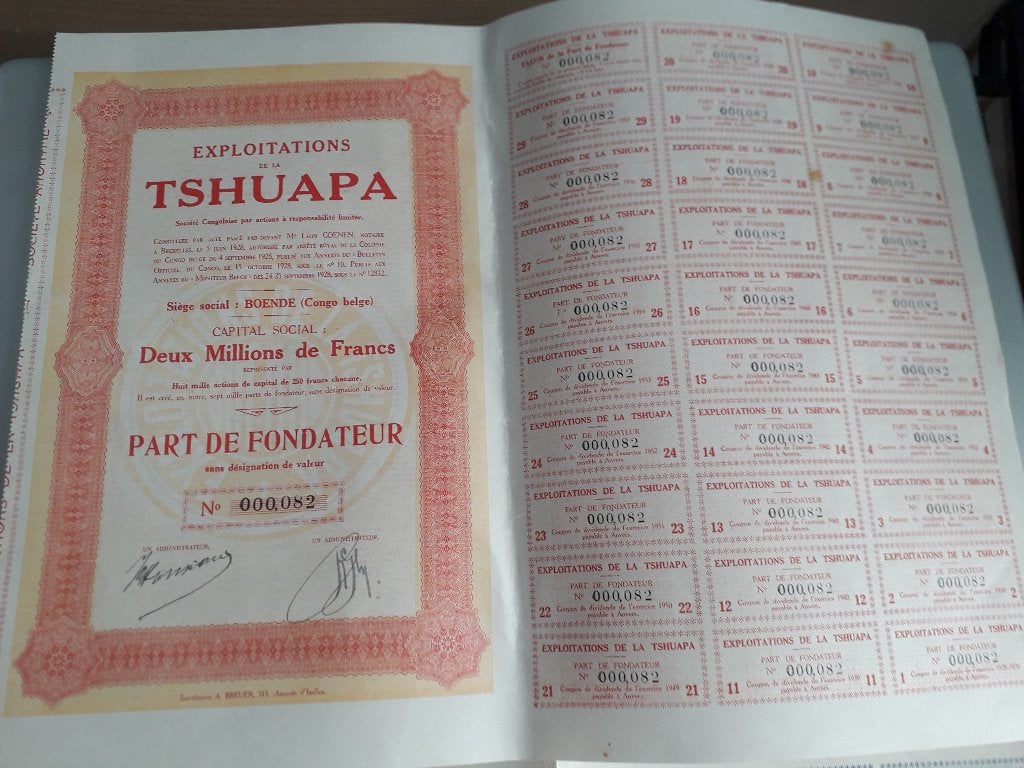 EXPLOITATIONS
DE LA
TSHUAPA
Société Congolaise par actions à responsabilité limitée.
CONSTITUÉE PAR ACTE PASSÉ PAR-DEVANT Me Léon COENEN, NOTAIRE
À BRUXELLES, LE 5 JUIN 1928, AUTORISÉE PAR ARRÊTÉ ROYAL DE LA COLONIE
DU CONGO BELGE DU 4 SEPTEMBRE 1928, PUBLIÉ AUX ANNEXES DU « BULLETIN
OFFICIEL DU CONGO, LE 15 OCTOBRE 1928, SOUS LE No 10. PUBLIÉ AUX
ANNEXES DU « MONITEUR BELGE » DES 24-25 SEPTEMBRE 1928, SOUS LE No 12832.
Siège social : BOENDE (Congo belge)
CAPITAL SOCIAL :
Deux Millions de Francs
REPRÉSENTÉ PAR
Huit mille actions de capital de 250 francs chacune.
Il est créé, en outre, sept mille parts de fondateur, sans désignation de valeur.
PART DE FONDATEUR
sans désignation de valeur
No 000,082
UN ADMINISTRATEUR, UN ADMINISTRATEUR,
Imprimerie A. BREUER, 313, chaussée d'Ixelles.
EXPLOITATIONS DE LA TSHUAPA
TALON de la Part de Fondateur
No 000,082
EXPLOITATIONS DE LA TSHUAPA
PART DE FONDATEUR
No 000,082
29 29
EXPLOITATIONS DE LA TSHUAPA
PART DE FONDATEUR
No 000,082
28 28
EXPLOITATIONS DE LA TSHUAPA
PART DE FONDATEUR
No 000,082
27 Coupon de dividende de l'exercice 1955 27
payable à Anvers.
EXPLOITATIONS DE LA TSHUAPA
PART DE FONDATEUR
No 000,082
26 Coupon de dividende de l'exercice 1954 26
payable à Anvers.
EXPLOITATIONS DE LA TSHUAPA
PART DE FONDATEUR
No 000,082
25 Coupon de dividende de l'exercice 1953 25
payable à Anvers.
EXPLOITATIONS DE LA TSHUAPA
PART DE FONDATEUR
No 000,082
24 Coupon de dividende de l'exercice 1952 24
payable à Anvers.
EXPLOITATIONS DE LA TSHUAPA
PART DE FONDATEUR
No 000,082
23 Coupon de dividende de l'exercice 1951 23
payable à Anvers.
EXPLOITATIONS DE LA TSHUAPA
PART DE FONDATEUR
No 000,082
22 Coupon de dividende de l'exercice 1950 22
payable à Anvers.
EXPLOITATIONS DE LA TSHUAPA
PART DE FONDATEUR
No 000,082
21 Coupon de dividende de l'exercice 1949 21
payable à Anvers.
EXPLOITATIONS DE LA TSHUAPA
PART DE FONDATEUR
No 000,082
20 20
EXPLOITATIONS DE LA TSHUAPA
PART DE FONDATEUR
No 000,082
19 19
EXPLOITATIONS DE LA TSHUAPA
PART DE FONDATEUR
No 000,082
18 18
EXPLOITATIONS DE LA TSHUAPA
PART DE FONDATEUR
No 000,082
17 17
EXPLOITATIONS DE LA TSHUAPA
PART DE FONDATEUR
No 000,082
16 16
payable à Anvers.
EXPLOITATIONS DE LA TSHUAPA
PART DE FONDATEUR
No 000,082
15 Coupon de dividende de l'exercice 1943 15
payable à Anvers.
EXPLOITATIONS DE LA TSHUAPA
PART DE FONDATEUR
No 000,082
14 Coupon de dividende de l'exercice 1942 14
payable à Anvers.
EXPLOITATIONS DE LA TSHUAPA
PART DE FONDATEUR
No 000,082
13 Coupon de dividende de l'exercice 1941 13
payable à Anvers.
EXPLOITATIONS DE LA TSHUAPA
PART DE FONDATEUR
No 000,082
12 Coupon de dividende de l'exercice 1940 12
payable à Anvers.
EXPLOITATIONS DE LA TSHUAPA
PART DE FONDATEUR
No 000,082
11 Coupon de dividende de l'exercice 1939 11
payable à Anvers.
EXPLOITATIONS DE LA TSHUAPA
PART DE FONDATEUR
No 000,082
10 10
EXPLOITATIONS DE LA TSHUAPA
PART DE FONDATEUR
No 000,082
9 9
EXPLOITATIONS DE LA TSHUAPA
PART DE FONDATEUR
No 000,082
8 8
EXPLOITATIONS DE LA TSHUAPA
PART DE FONDATEUR
No 000,082
7 7
EXPLOITATIONS DE LA TSHUAPA
PART DE FONDATEUR
No 000,082
6 6
EXPLOITATIONS DE LA TSHUAPA
PART DE FONDATEUR
No 000,082
5 5
payable à Anvers.
EXPLOITATIONS DE LA TSHUAPA
PART DE FONDATEUR
No 000,082
4 4
payable à Anvers.
EXPLOITATIONS DE LA TSHUAPA
PART DE FONDATEUR
No 000,082
3 3
payable à Anvers.
EXPLOITATIONS DE LA TSHUAPA
PART DE FONDATEUR
No 000,082
2 Coupon de dividende de l'exercice 1930 2
payable à Anvers.
EXPLOITATIONS DE LA TSHUAPA
PART DE FONDATEUR
No 000,082
1 Coupon de dividende de l'exercice 1928-1929 1
payable à Anvers.